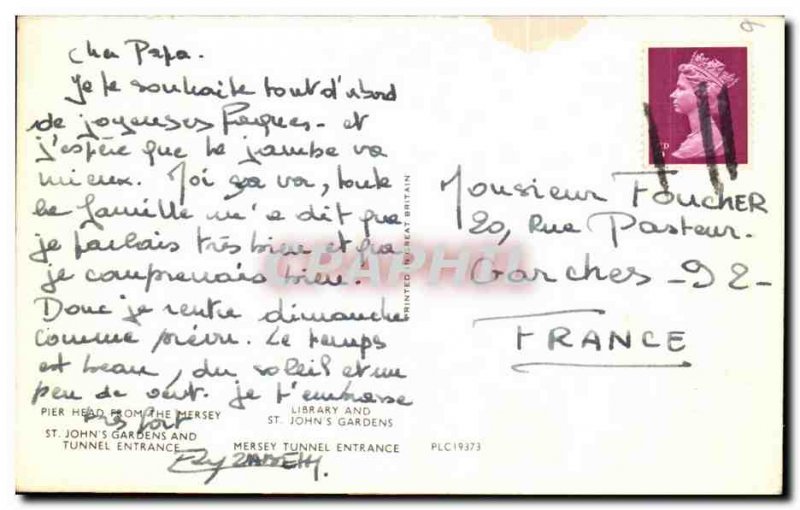 Cher Papa.
Je te souhaite tout d'abord
de joyeuses Paques - et
j'espère que ta jambe va
mieux. Moi ça va, toute
la famille m'a dit que
je parlais très bien et que
je comprenais bien.
Donc je rentre dimanche
comme prévu. Le temps
est beau, du soleil et un
peu de vent. je t'embrasse
très fort
Elyzabeth.
Monsieur FOUCHER
20, Rue Pasteur.
Garches - 92 -
FRANCE
PRINTED IN GREAT BRITAIN
CPAPHIL
PIER HEAD FROM THE MERSEY
LIBRARY AND
ST. JOHN'S GARDENS
ST. JOHN'S GARDENS AND
TUNNEL ENTRANCE
MERSEY TUNNEL ENTRANCE
PLC19373